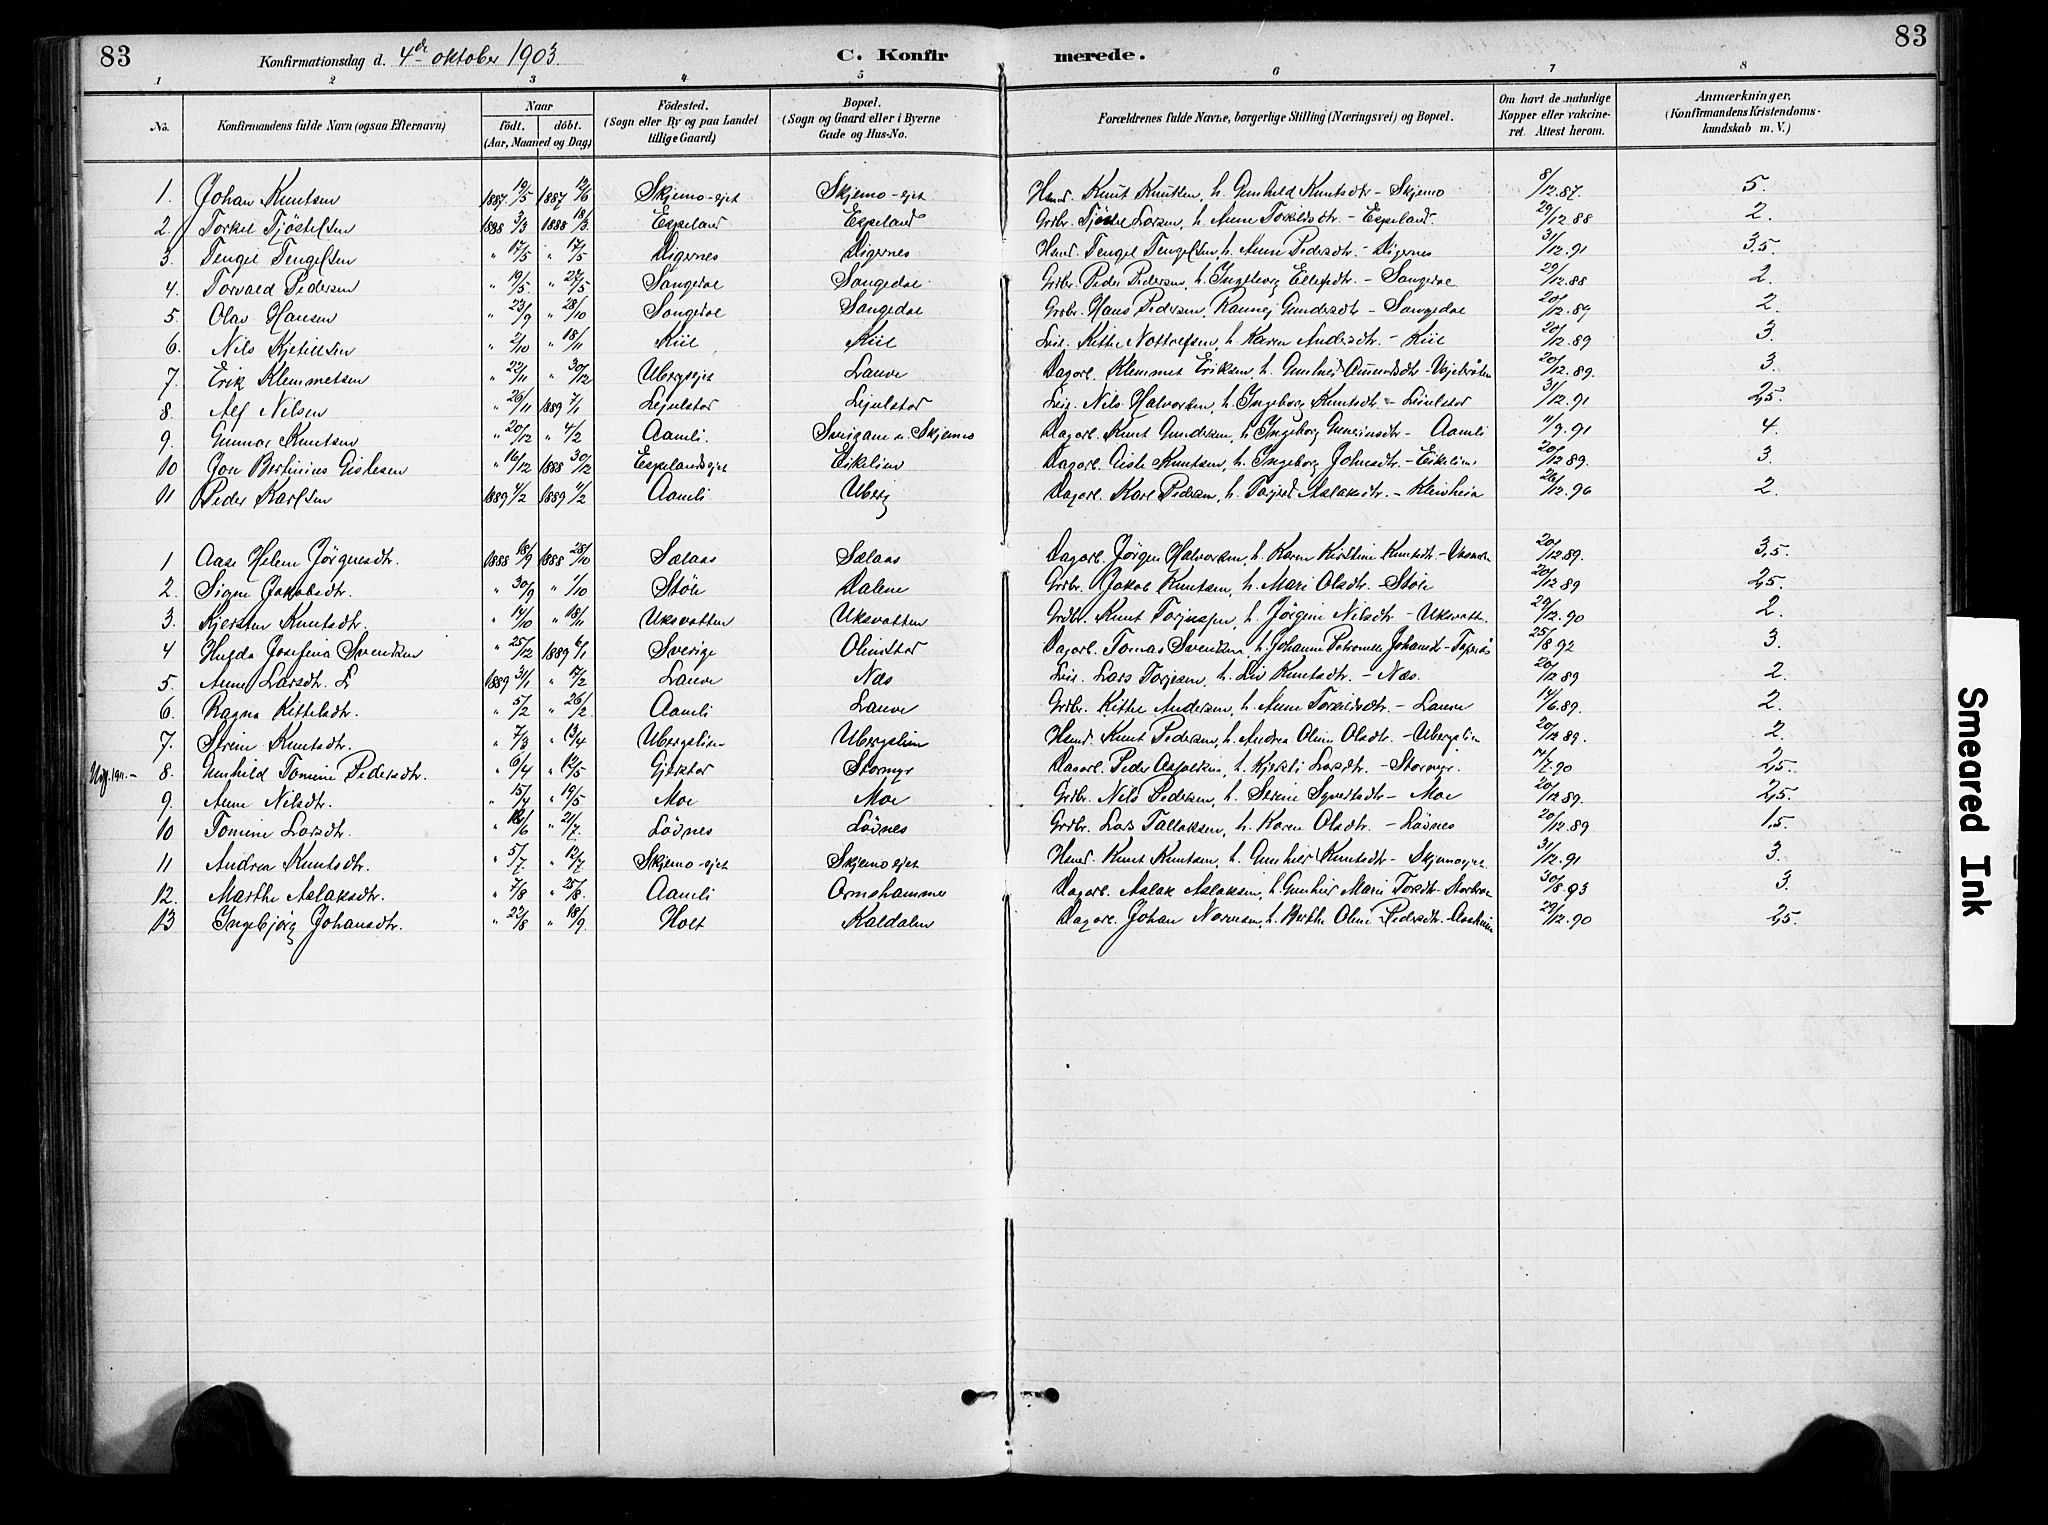 83 Konfirmationsdag d. 4de oktober 1903. C. Konfirmerede. 83
1 2 3 4 5 6 7 8
No. Konfirmandens fulde Navn (ogsaa Efternavn) Naar födt. döbt. (Aar, Maaned og Dag) Födested. (Sogn eller By og paa Landet tillige Gaard) Bopæl. (Sogn og Gaard eller i Byerne Gade og Hus-No. Forældrenes fulde Navne, borgerlige Stilling (Næringsvei) og Bopæl. Om havt de naturlige Kopper eller vakcineret. Attest herom. Anmærkninger, (Konfirmandens Kristendomskundskab m. V.)
1. Johan Knutsen 1887 19/5 1887 12/6 Skjemo-ejet Skjemo-ejet Hsmd. Knut Knutsen, h. Gunhild Knutsdtr - Skjemo 8/12.87. 5.
2. Torkel Tjöstelsen 1888 3/3 1888 18/3. Espeland Espeland Grdbr. Tjöstel Larsen, h. Anne Torkildsdtr. - Espeland. 29/12 88 2.
3. Tengel Tengelsen " 17/5 " 17/5 Digernes Digernes Hsmd. Tengel Tengelsen, h. Anne Pedersdtr. - Digernes 31/12.91 3,5.
4. Torvald Pedersen " 19/5. " 27/5 Sangedal Sangedal Grdbr. Peder Pedersen, h. Ingeborg Ellefsdtr. - Sangedal 29/12.88 2.
5. Olav Hansen " 23/9 " 28/10 Sangedal Sangedal Grdbr. Hans Pedersen, Rannej Gundersdtr - Sangedal 20/12.89 2.
6. Nils Kjetilsen " 2/10 " 18/11 Kiil Kiil Leil. Kittel Nottolfsen, h. Karen Andersdtr. - Kiil 20/12.89 3.
7. Erik Klemmetsen " 22/11 " 30/12 Ubergsejet Lauve Dagarl. Klemmet Eriksen h. Gunhild 20/12.89. 3.
8. Alf Nilsen " 26/11 1889 7/1 Lejulstør Lejulstør Leil. Nils Halvorsen, h. Ingeborg Knutsdtr - 31/12.91 2,5.
9. Gunnar Knutsen " 20/12 " 4/2 Aamli. Skjemo Dagarl. Knut Gundersen, h. Ingeborg - Aamli 11/9.91 4.
10 Jon Bertinius Gislesen " 16/12 1888 30/12 Espelandsejet Eikeliem Dagarl. Gisle Knutsen, h. Ingeborg Johnsdtr. - Eikeliem 20/12 89. 3.
11 Peder Karlsen 1889 4/2 1889 11/2 Aamli Uberg Dagarl. Karl Pedersen, h. Torjerd Aslaksdtr. - Kleivheia 26/12.96 2.
1 Aase Helene Jörgensdtr. 1888 18/9 1888 28/10 Sælaas Sælaas Dagarl. Jörgen Halvorsen, h. Karen Kirstine Knutsdtr. - 20/12.89. 3,5.
2. Signe Jakobsdtr. " 30/9 " 1/10 Støle Dalene Grdbr. Jakob Knutsen, h. Mari Olsdtr. - Støle 20/12.89 2,5.
3. Kjersten Knutsdtr. " 14/10 " 18/11 Uksvatten Uksvatten Grdbr. Knut h. Jörgine Nilsdtr - Uksvatten 29/12.90 2.
4 Hulda Josefina Svendsen " 25/12 1889 6/1 Sverige Olimstør Dagarl. Tomas Svendsen, h. Johanne Petronelle 25/8 92 3.
5. Anne Larsdtr. L 1889 3/1 " 17/2 Lauve Næs Leil. Lars Torjesen, h. Liv Knutsdtr. - Næs. 20/12 89 2.
6. Ragna Kittelsdtr. " 5/2 " 26/2. Aamli Lauve Grdbr. Kittel Andersen, h. Anne Torkildsdtr. - Lauve 14/6.89. 2.
7. Serine Knutsdtr. " 7/3 " 13/4 Ubergslien Ubergslien Hsmd. Knut Pedersen, h. Andrea Oline Olsdtr. - Ubergslien 20/12 89. 2.
1911.- 8. Gunhild Tomine Pedersdtr. " 6/4 " 12/5 Gjerstør Stormyr Dagarl. Peder h. Kjersti Larsdtr. - Stormyr. 17/7.90 2,5.
9. Anne Nilsdtr. " 15/4 " 19/5 Moe Moe Grdbr. Nils Pedersen, h. Serine Syvertsdtr - Moe 20/12 89. 2,5.
10 Tomine Larsdtr. " /6 " 21/7. Lövnes Lövnes Grdbr. Lars Tallaksen, h. Karen Olsdtr. - Lövnes 20/12.89 1,5.
11 Andrea Knutsdtr. " 5/7 " 12/7 Skjemo-ejet Skjemo ejet Hsmd. Knut Knutsen, h. Gunhild Knutsdtr - Skjemoejet 31/12.91 3.
12. Marthe Aslaksdtr. " 7/8 " 25/8. Aamli Ormshammer Dagarl. Aslak Aslaksen, h. Gunhild Marie Torsdtr - 30/8.93 3.
13 Ingebjörg Johansdtr. " 22/8 " 18/9 Holt Kaldalen Dagarl. Johan h. Berthe Oline Pedersdtr. - 29/12.90 2,5.
Smeared Ink